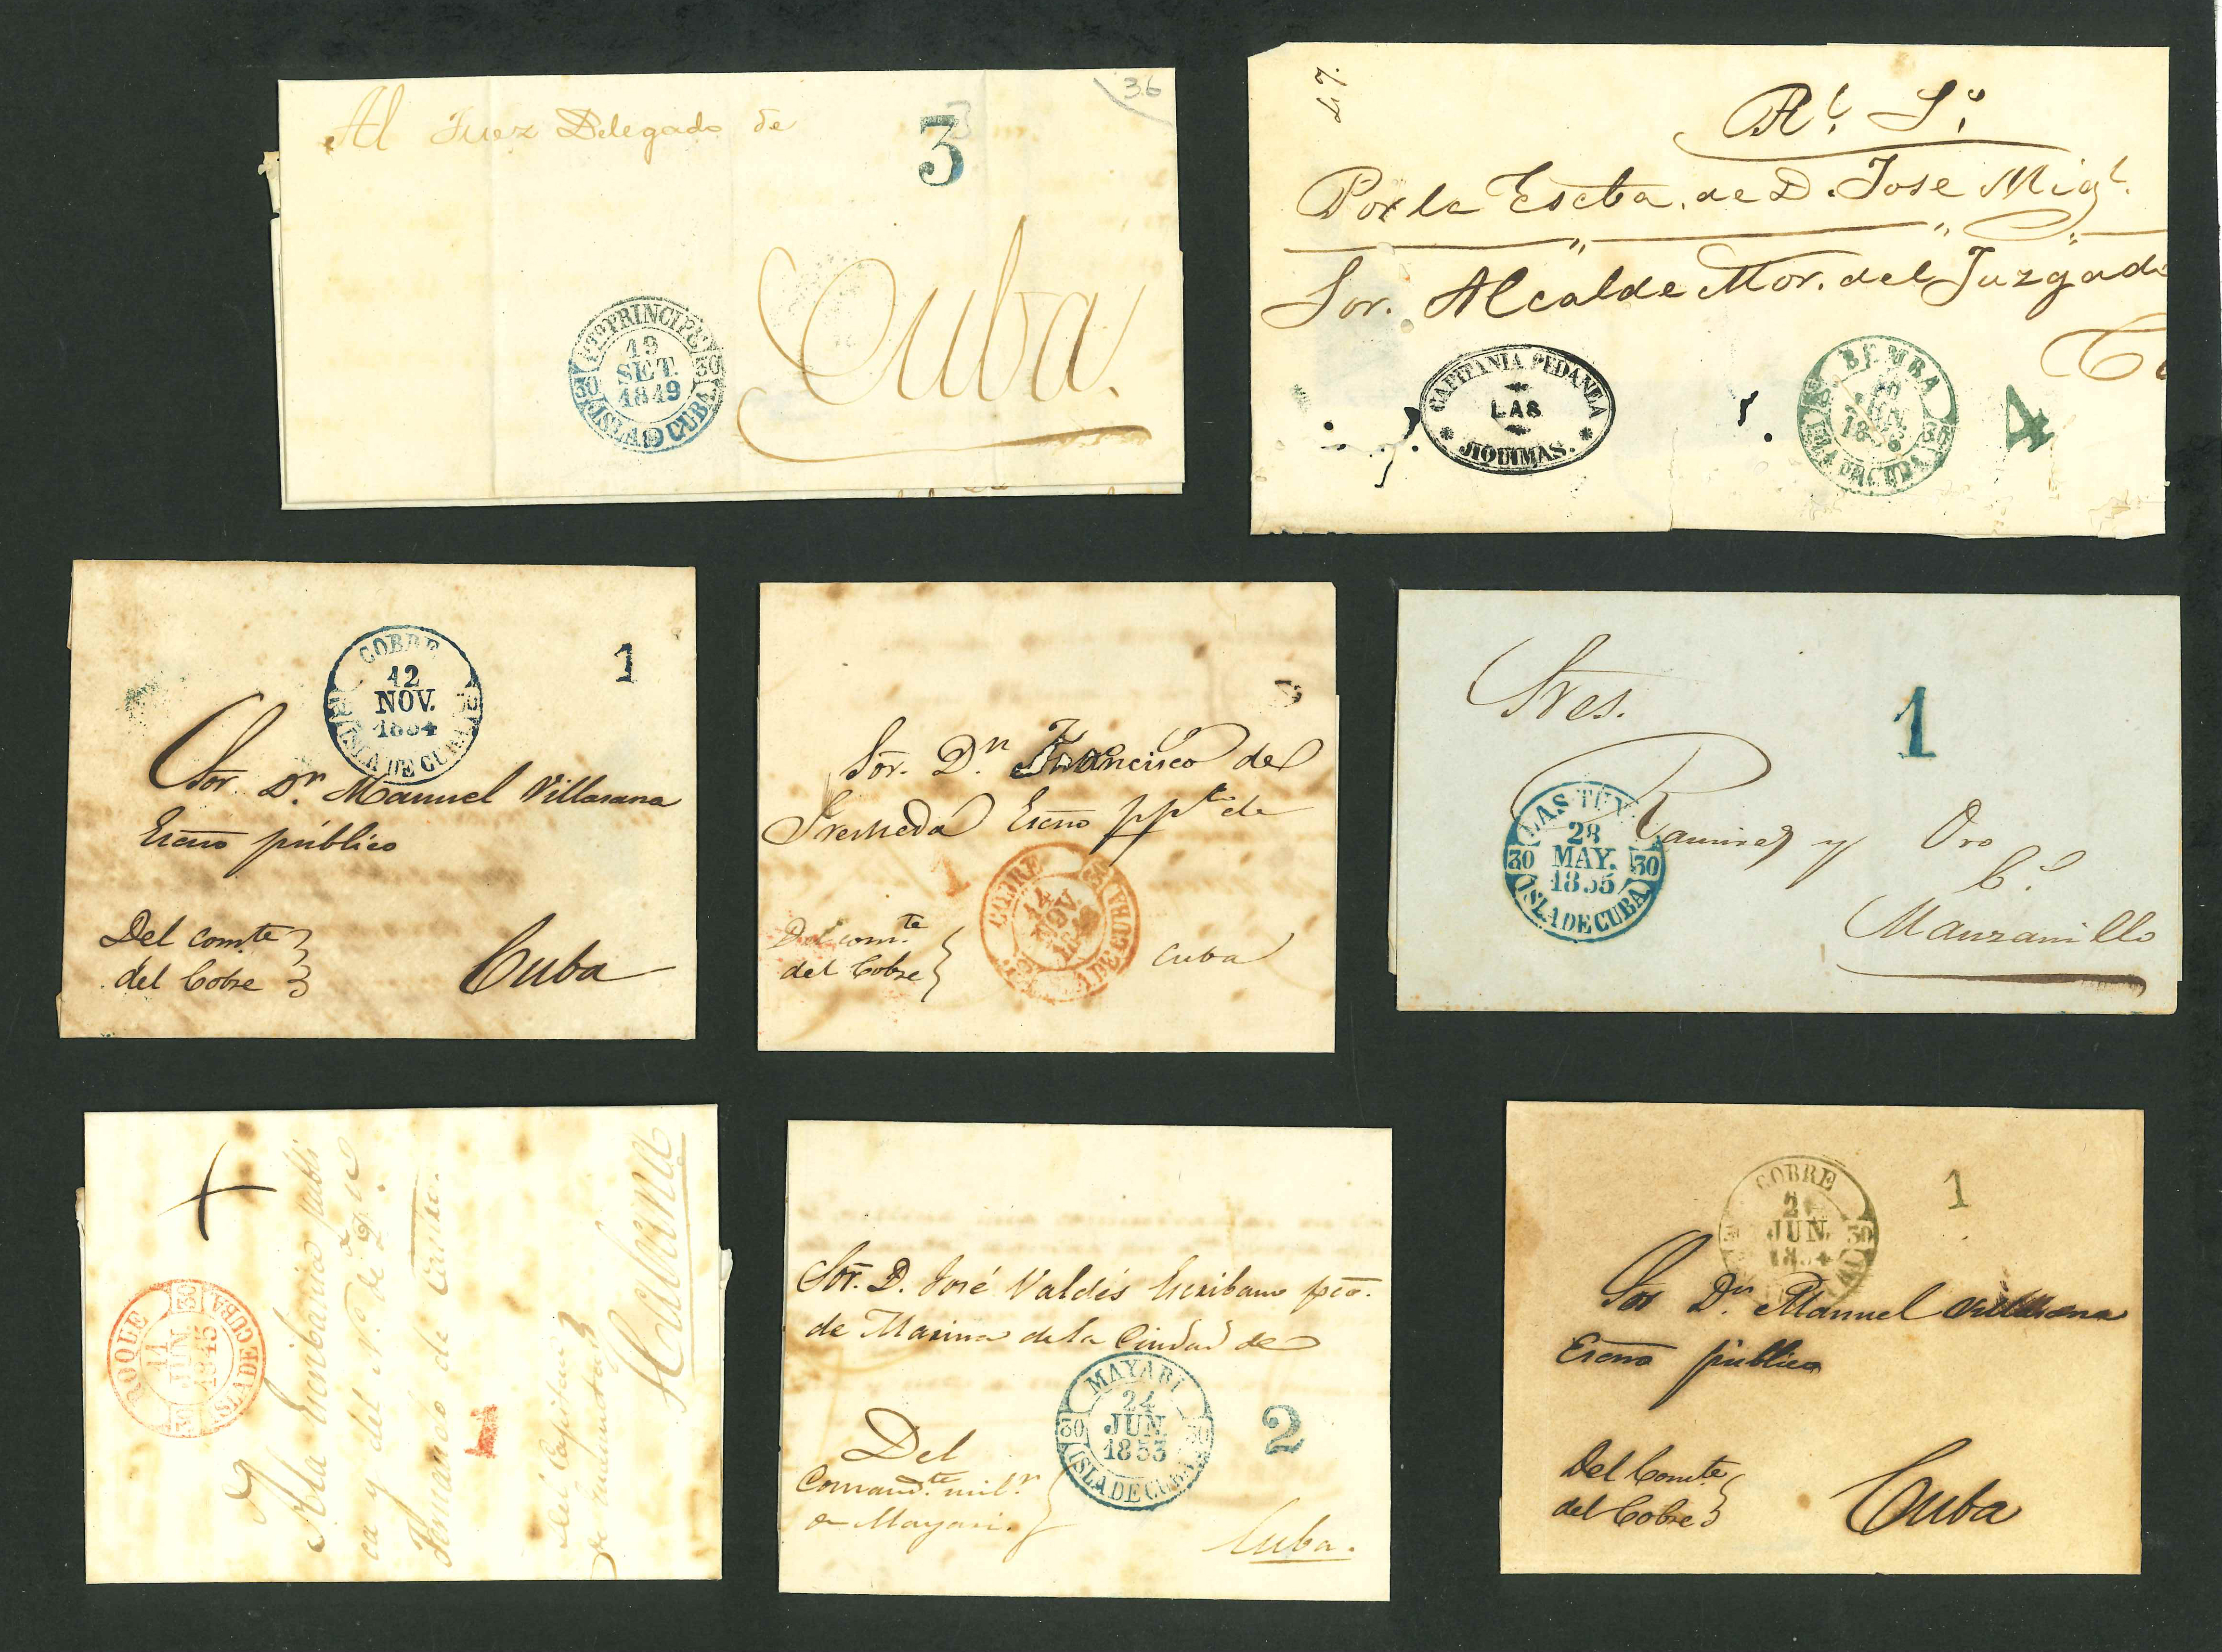 36
Al Juez Delegado de
3
PTO PRINCIPE
19
SET.
1849
30 30
ISLA D CUBA
Cuba.
47.
Rl. So.
Por la Escba. de D. Jose Migl.
Sor. Alcalde Mor. del Juzgado
CAPITANIA PEDANEA
LAS
JIQUIMAS.
BEMBA
JUN.
30
ISLA DE CUBA
4
COBRE
12
NOV.
1854
ISLA DE CUBA
1
Sor. Dn. Manuel Villasana
Escno público
Del comte
del Cobre
Cuba
Sor. Dn. Francisco de
Escno ppco de
1
COBRE
14
NOV.
30
ISLA DE CUBA
Del comte
del Cobre
Cuba
Sres.
1
LAS TUN
28
MAY.
1855
30 30
ISLA DE CUBA
Ramirez y Oro
Ca.
Manzanillo
ROQUE
11
JUN.
1845
30 30
ISLA DE CUBA
A la Escribanía públi
ca y del No. de Dn. Je
de
1
Del Capitan
de
Habana
Sor. D. José Valdés Escribano pco.
de Marina de la Ciudad de
MAYARI
24
JUN.
1853
30 30
ISLA DE CUBA
2
Del
Comandte. milr.
de Mayari.
Cuba.
COBRE
JUN.
30
1
Sor Dn. Manuel Villasana
Escno público
Del Comte
del Cobre
Cuba